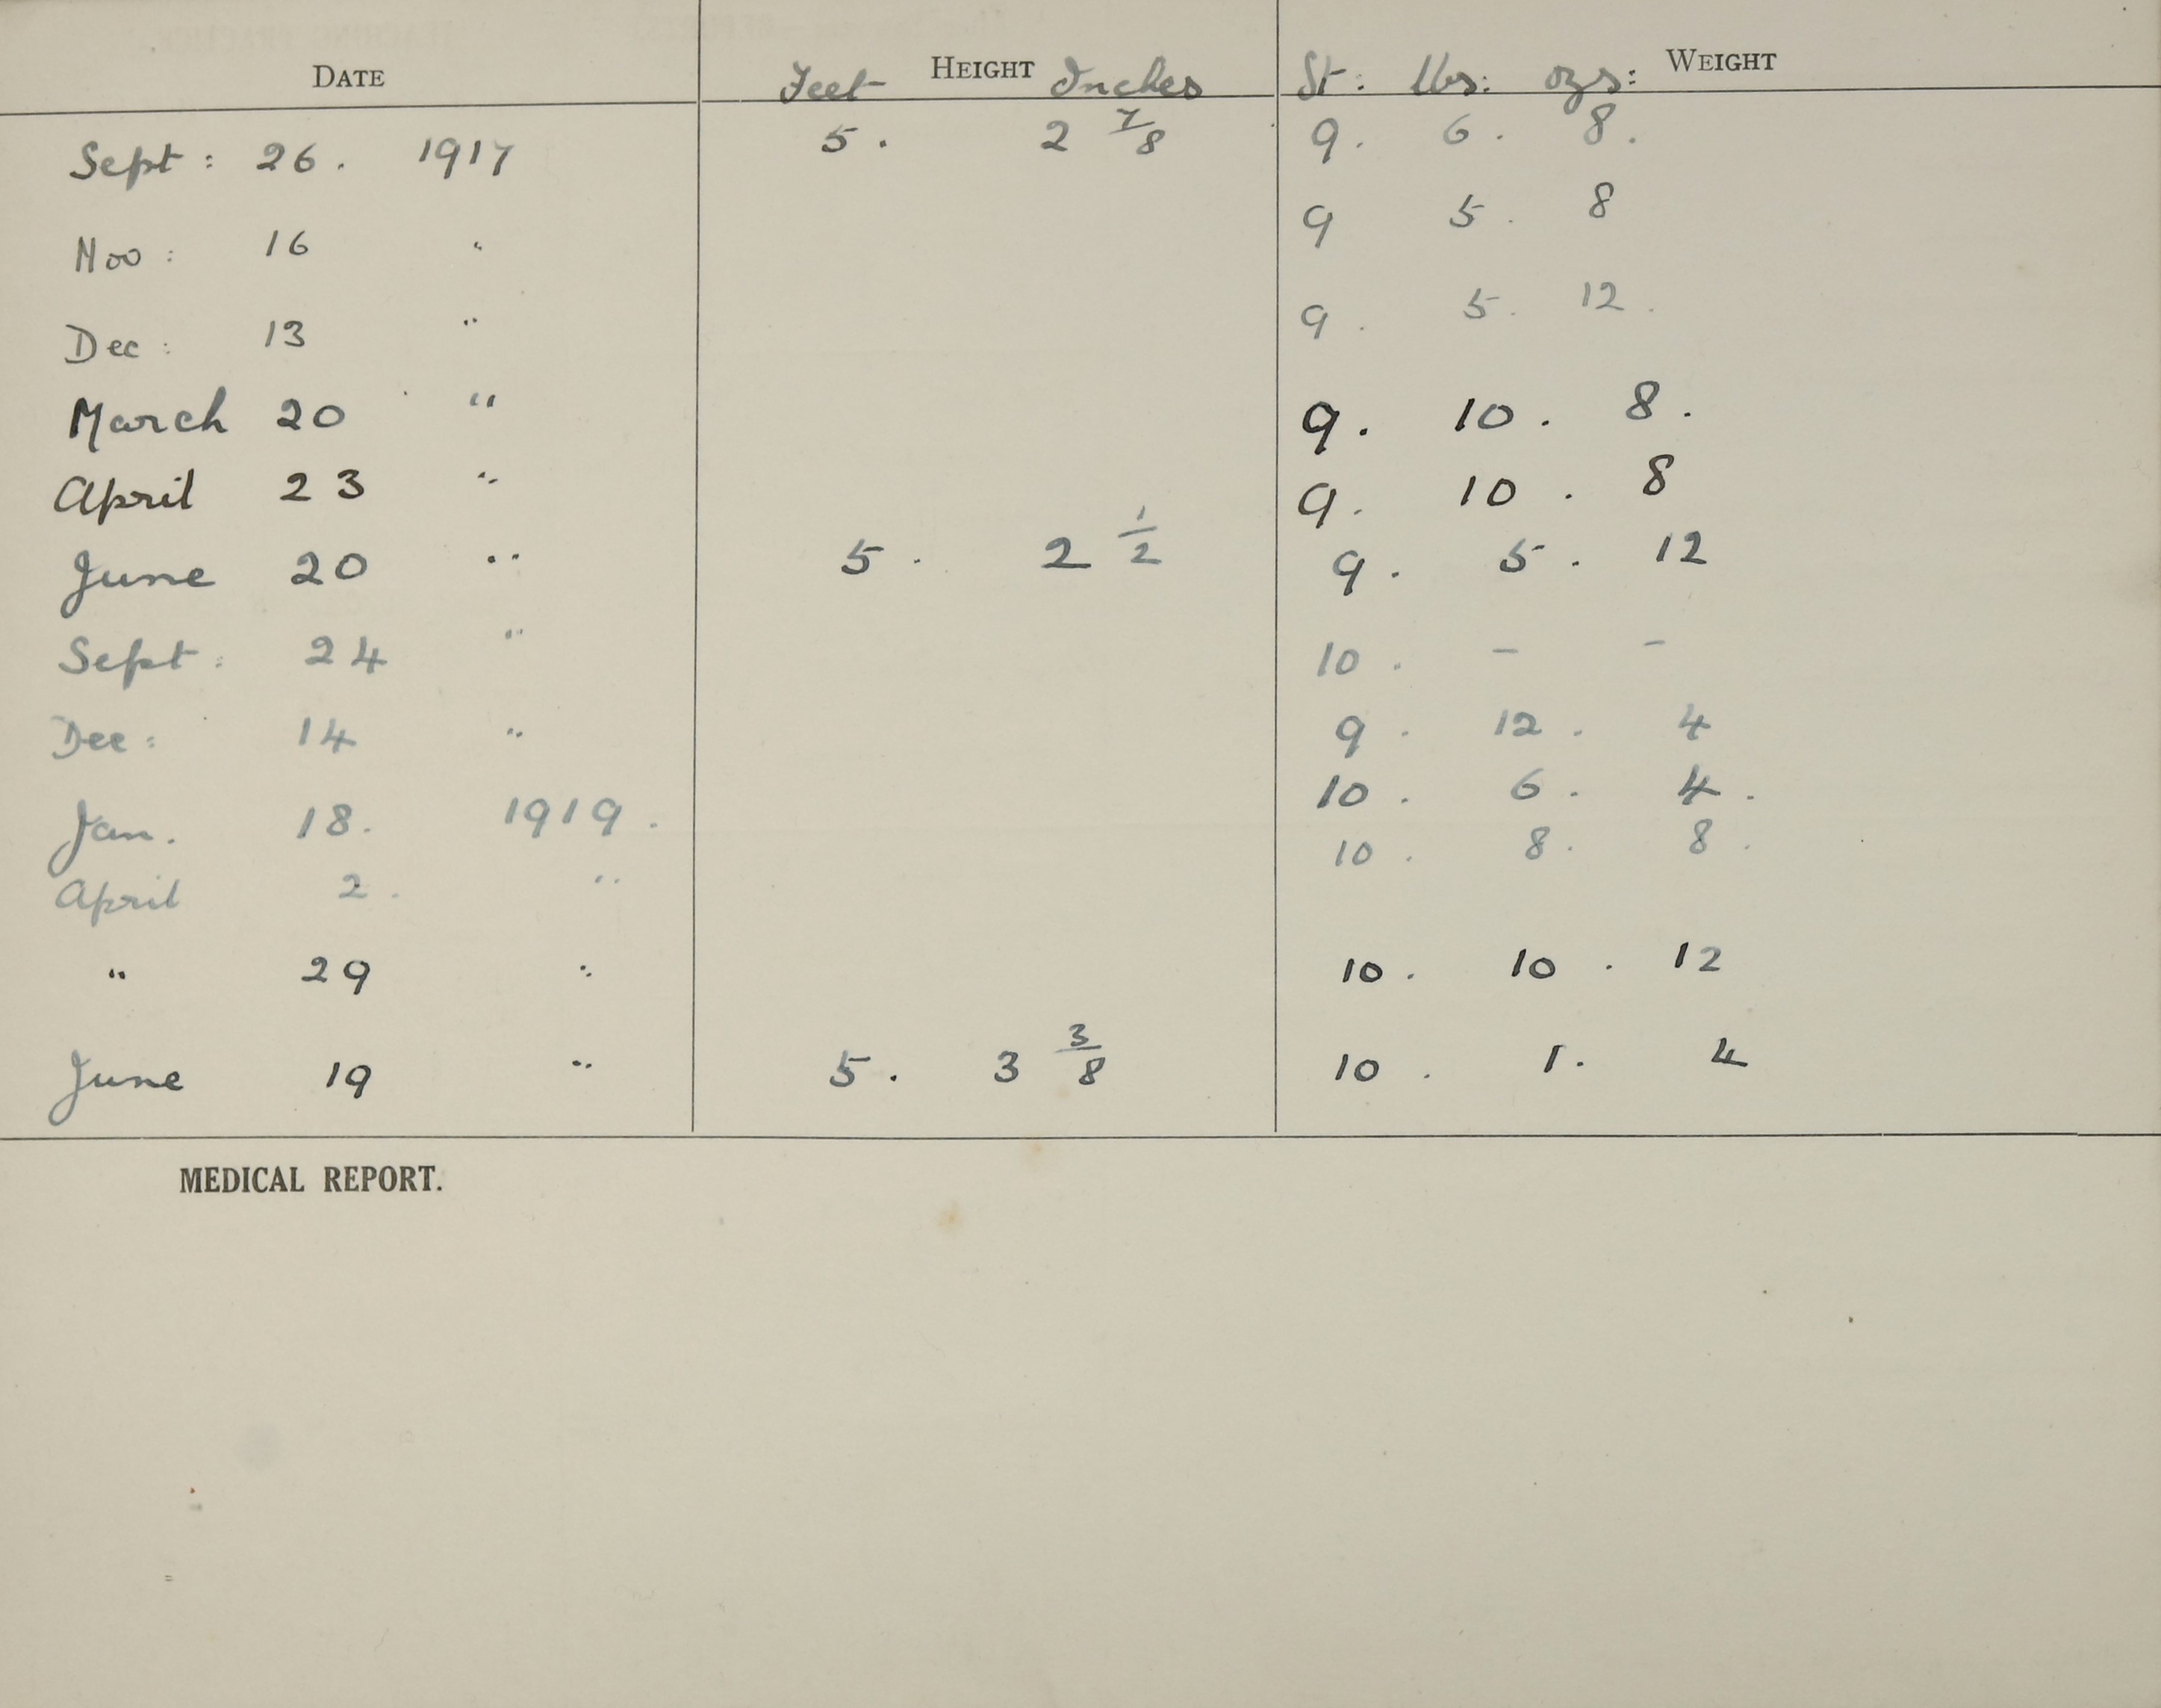 DATE Feet HEIGHT Inches St: lbs: ozs: WEIGHT
Sept: 26. 1917 5. 2 7/8 9. 6. 8.
Nov: 16 " 9 5. 8
Dec: 13 " 9. 5. 12.
March 20 " 9. 10. 8.
April 23 " 9. 10. 8
June 20 " 5. 2 1/2 9. 5. 12
Sept: 24 " 10. - -
Dec: 14 " 9. 12. 4
Jan. 18. 1919. 10. 6. 4.
April 2. " 10. 8. 8.
" 29 " 10. 10. 12
June 19 " 5. 3 3/8 10. 1. 4
MEDICAL REPORT.